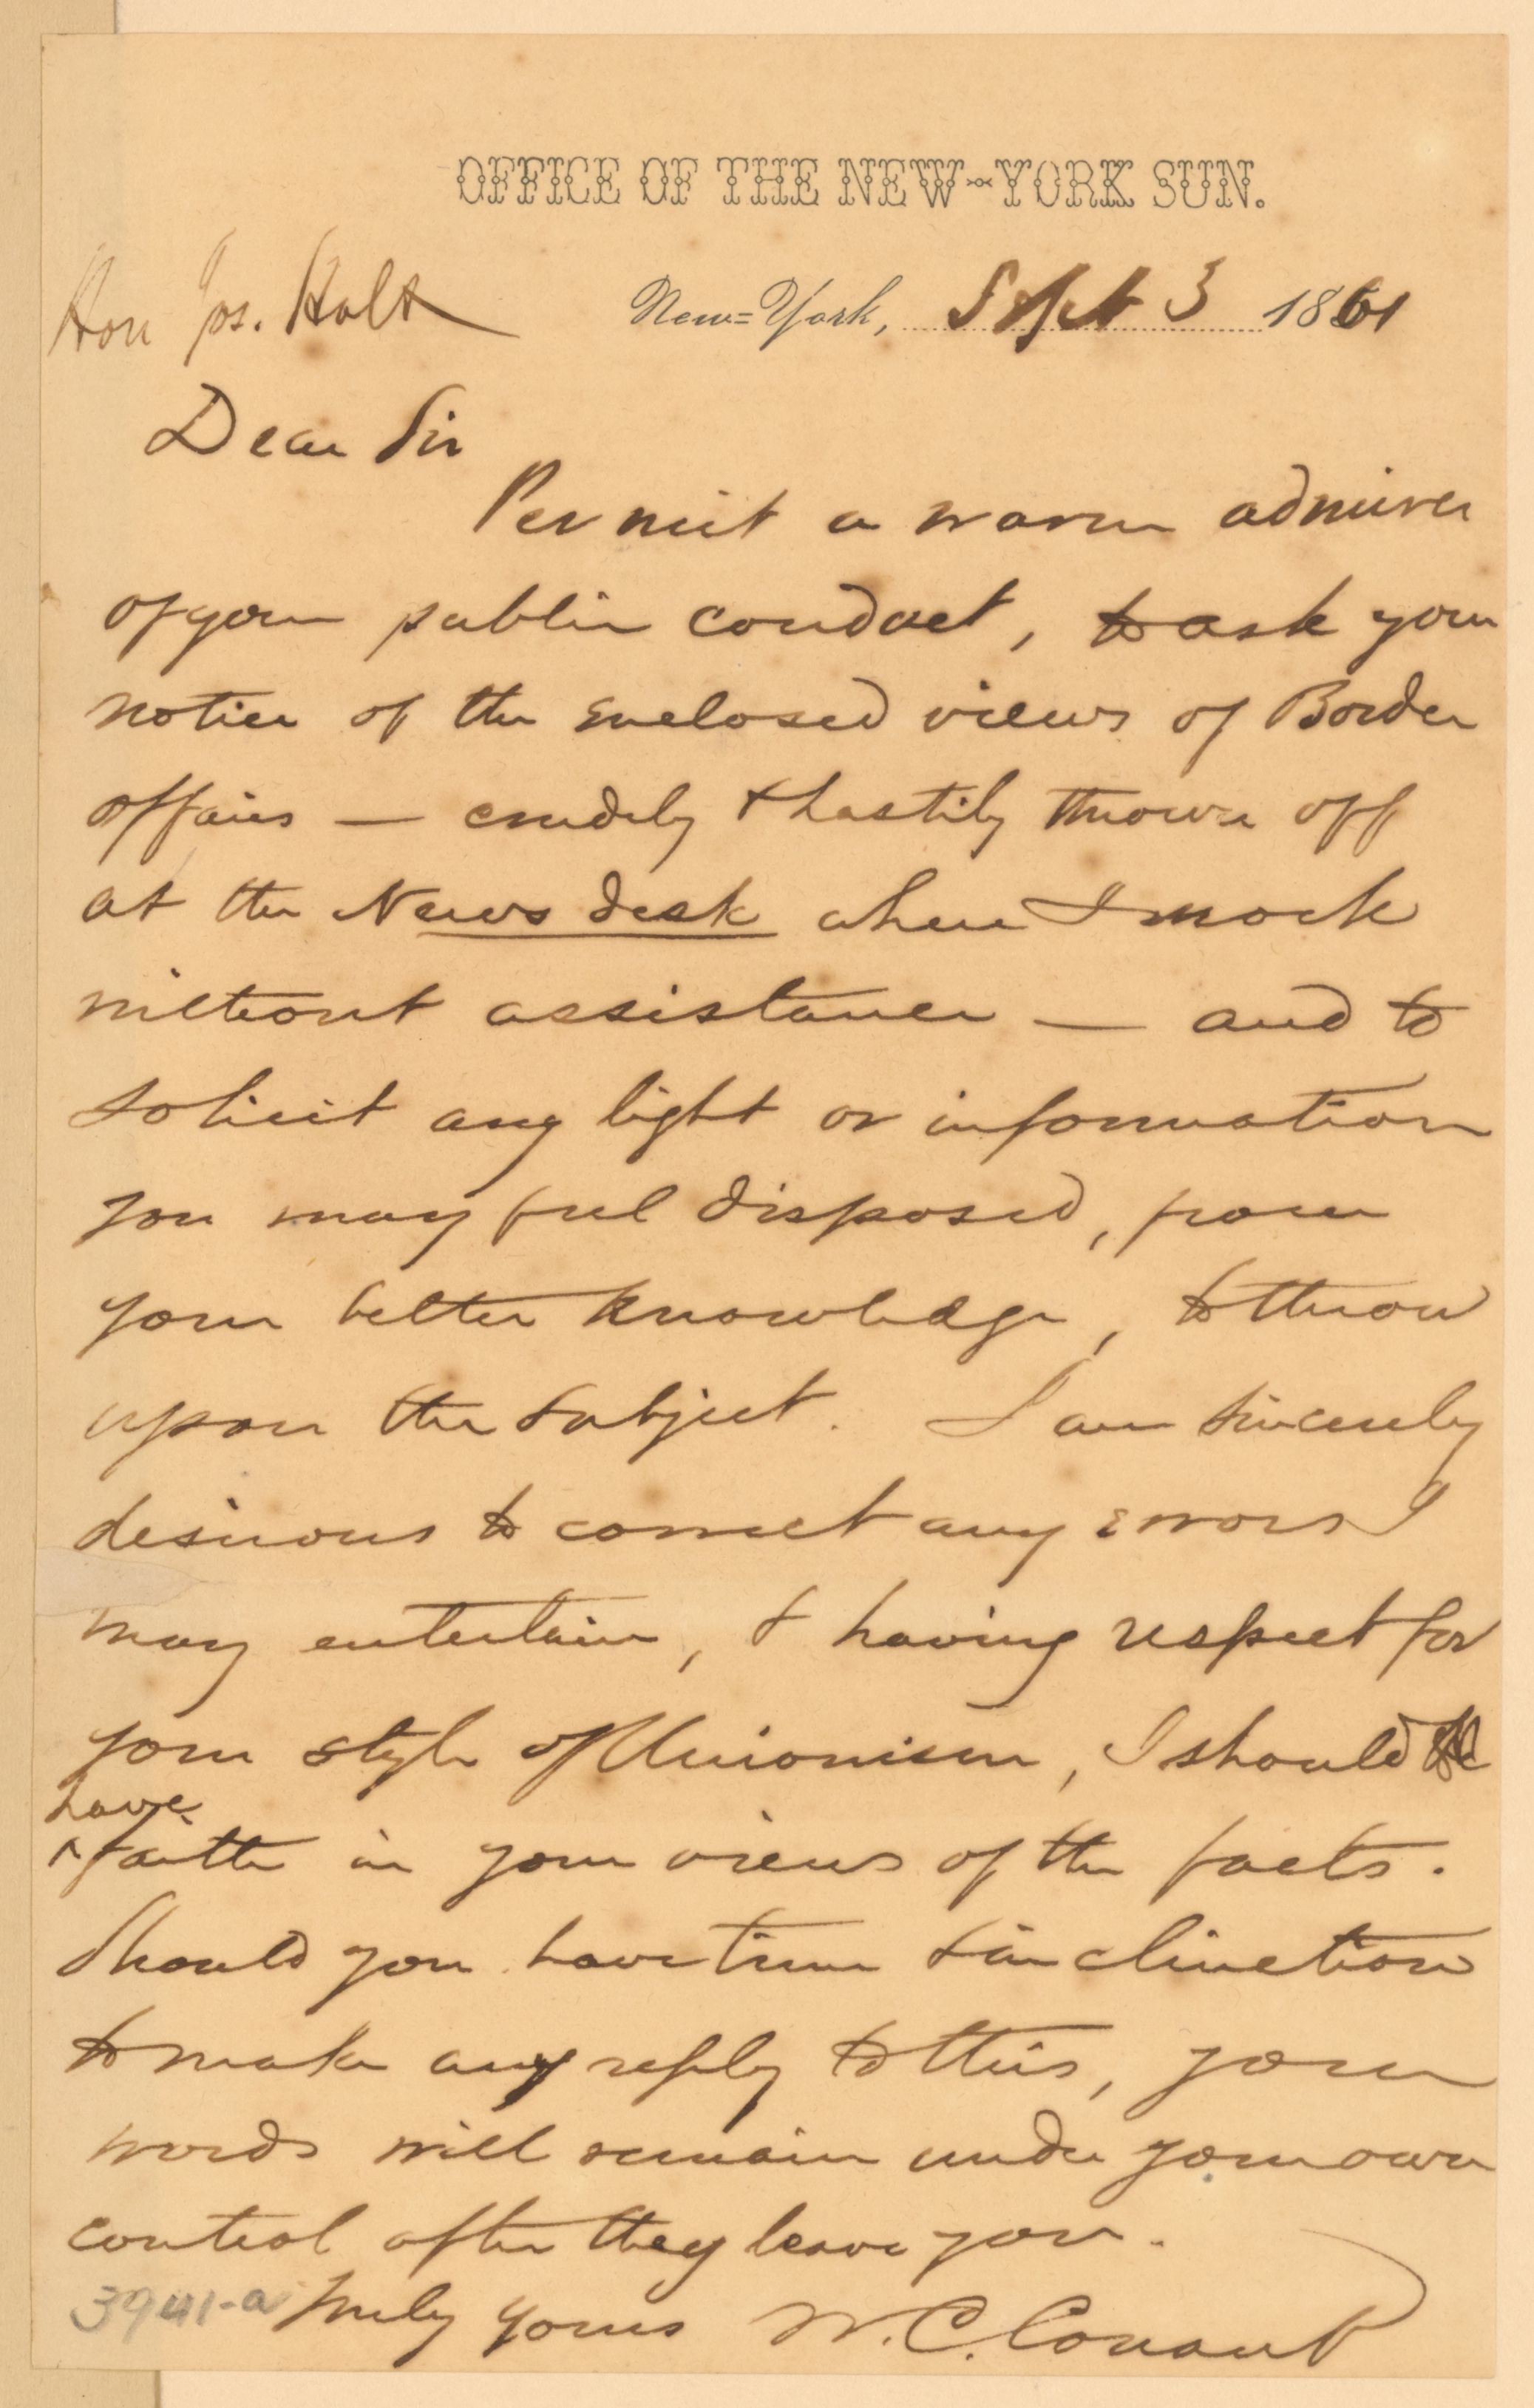 OFFICE OF THE NEW-YORK SUN.
Hon Jos. Holt New=York, Sept 3 1861
Dear Sir
Permit a warm admirer
of your public conduct, to ask your
notice of the enclosed views of Border
affairs — crudely & hastily thrown off
at the News desk where I work
without assistance — and to
solicit any light or information
you may feel disposed, from
your better knowledge, to throw
upon the subject. I am sincerely
desirous to correct any errors I
may entertain, & having respect for
your style of Unionism, I should
have
^ faith in your views of the facts.
Should you have time & inclination
to make any reply to this, your
words will remain under your own
control after they leave you.
3941-a Truly yours W. C. Conant